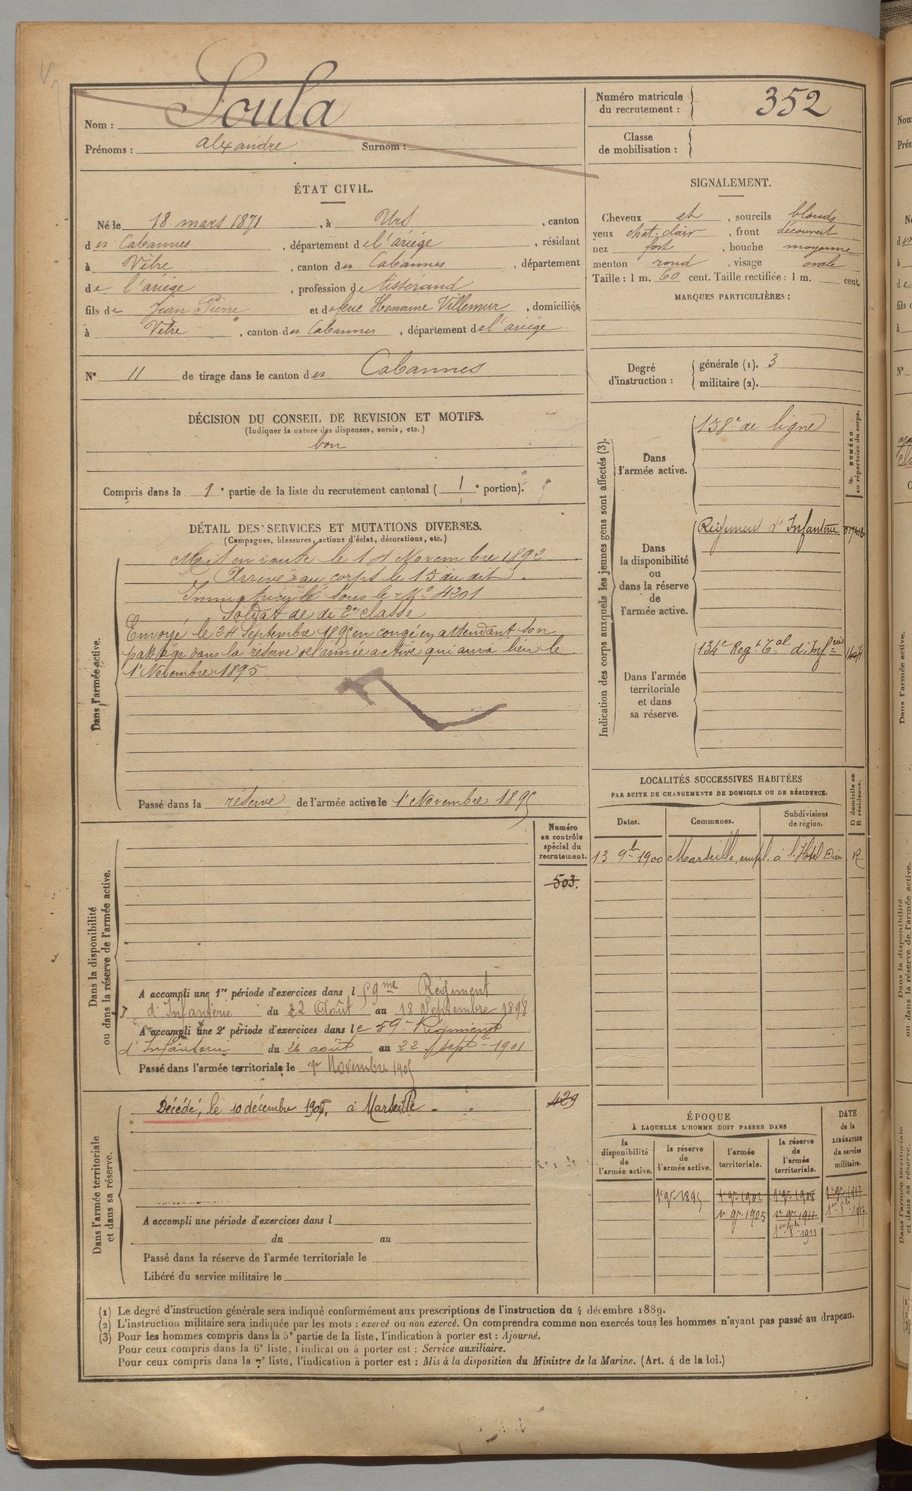 Nom : Soula
Prénoms : alexandre Surnom :
Numéro matricule du recrutement : 352
Classe de mobilisation :
ÉTAT CIVIL.
Né le 18 mars 1871, à Urs, canton
des Cabannes, département de l'ariège, résidant
à Vèbre, canton des Cabannes, département
de l'ariège, profession de tisserand
fils de Jean Pierre et de Villemur, domiciliés
à Vèbre, canton des Cabannes, département de l'ariège
N° 11 de tirage dans le canton des Cabannes
SIGNALEMENT.
Cheveux et, sourcils blonds
yeux chat. clair, front découvert
nez fort, bouche moyenne
menton rond, visage ovale
Taille : 1 m. 60 cent. Taille rectifiée : 1 m. cent.
MARQUES PARTICULIÈRES :
Degré d'instruction : générale (1). 3
militaire (2).
DÉCISION DU CONSEIL DE REVISION ET MOTIFS.
(Indiquer la nature des dispenses, sursis, etc.)
bon
Compris dans la 1e partie de la liste du recrutement cantonal (1e portion).
DÉTAIL DES SERVICES ET MUTATIONS DIVERSES.
(Campagnes, blessures, actions d'éclat, décorations, etc.)
Dans l'armée active.
Mis en route le 14 Novembre 1892
Arrivé au corps le 15 du dit
Immatriculé sous le N° 4201
Soldat de 2e classe
Envoyé le 24 Septembre 1895 en congé en attendant son
passage dans la réserve de l'armée active qui aura lieu le
1er Novembre 1895
Passé dans la réserve de l'armée active le 1er Novembre 1895
Indication des corps auxquels les jeunes gens sont affectés (3).
NUMÉRO au répertoire du corps.
Dans l'armée active. 138e de ligne
Dans la disponibilité ou dans la réserve de l'armée active. Régiment d'Infanterie
Dans l'armée territoriale et dans sa réserve. 134e Regt Tal d'Infrie
LOCALITÉS SUCCESSIVES HABITÉES
PAR SUITE DE CHANGEMENTS DE DOMICILE OU DE RÉSIDENCE.
Dates. Communes. Subdivisions de région. D domicile ou R résidence.
13 9bre 1900 Marseille, empl. à l'Hôtel Dieu R
Numéro au contrôle spécial du recrutement.
503.
Dans la disponibilité ou dans la réserve de l'armée active.
A accompli une 1re période d'exercices dans l 59me Régiment
d'Infanterie du 22 Août au 18 Septembre 1898
A accompli une 2e période d'exercices dans le 59e Régiment
d'Infanterie du 26 août au 22 septbre 1901
Passé dans l'armée territoriale le 1er Novembre 1905
Dans l'armée territoriale et dans sa réserve.
429
Décédé, le 10 décembre 1905, à Marseille
A accompli une période d'exercices dans l
du au
Passé dans la réserve de l'armée territoriale le
Libéré du service militaire le
ÉPOQUE
À LAQUELLE L'HOMME DOIT PASSER DANS
la disponibilité de l'armée active. la réserve de l'armée active. l'armée territoriale. la réserve de l'armée territoriale.
DATE de la LIBÉRATION du service militaire.
1er 9bre 1895
1er 9bre 1905 1er 9bre 1911
(1) Le degré d'instruction générale sera indiqué conformément aux prescriptions de l'instruction du 4 décembre 1889.
(2) L'instruction militaire sera indiquée par les mots : exercé ou non exercé. On comprendra comme non exercés tous les hommes n'ayant pas passé au drapeau.
(3) Pour les hommes compris dans la 5e partie de la liste, l'indication à porter est : Ajourné.
Pour ceux compris dans la 6e liste, l'indication à porter est : Service auxiliaire.
Pour ceux compris dans la 7e liste, l'indication à porter est : Mis à la disposition du Ministre de la Marine. (Art. 4 de la loi.)